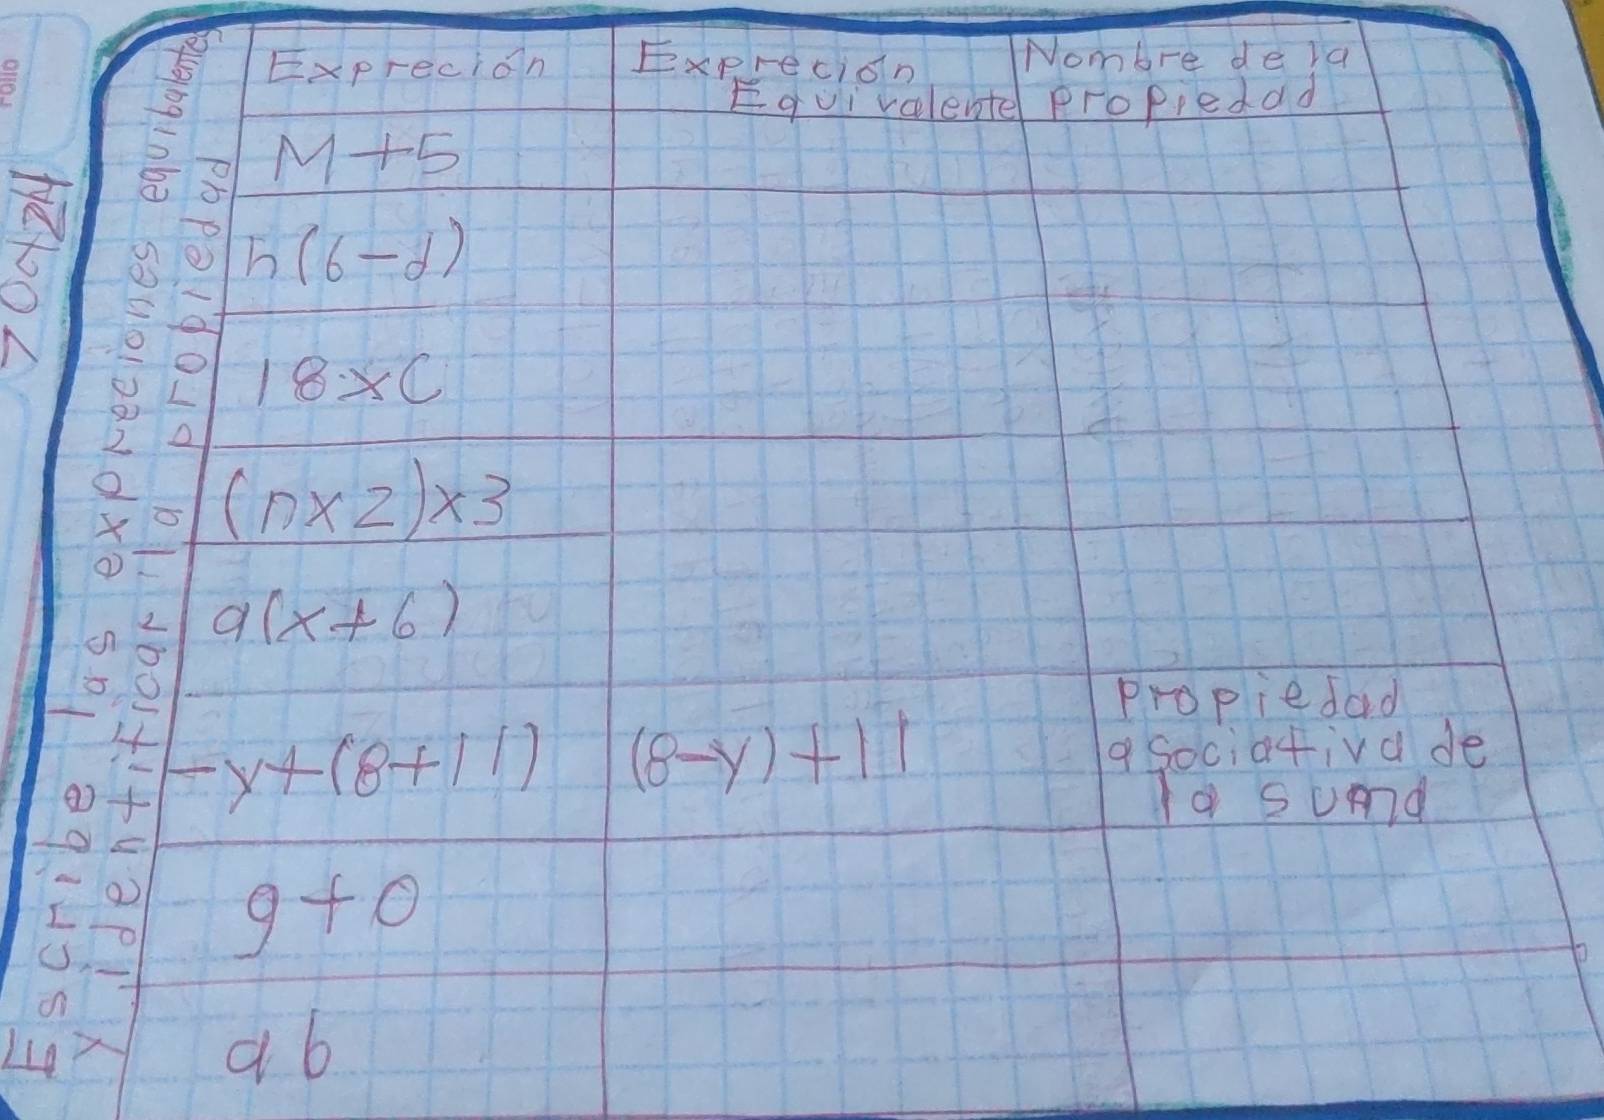 Folio
7 Oct 24
Escribe las expreciones equibalentes
y identificar la propiedad
Expreción Expreción Equivalente Nombre de la propiedad
M+5
h(6-d)
18xC
(nx2)x3
a(x+6)
-y+(8+11) (8-y)+11 propiedad asociativa de la suma
g+0
ab